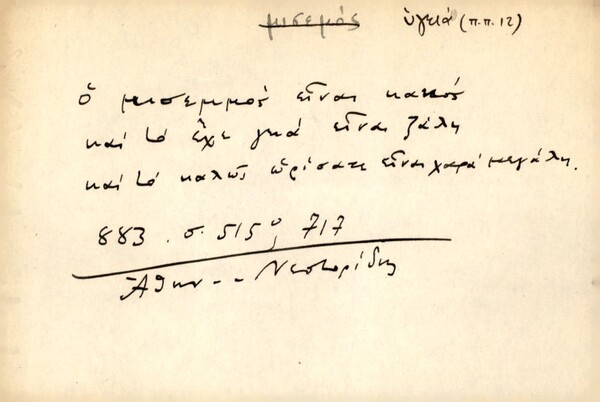 μισεμός ὑγειά (π.π. 12)
ὁ μισεμμός εἶναι κακός
καί τό ἔχε γειά εἶναι ζάλη
καί τό καλῶς ὡρίσατε εἶναι χαρά μεγάλη.
883 . σ. 515, 717
Ἀθην -- Νεστορίδης